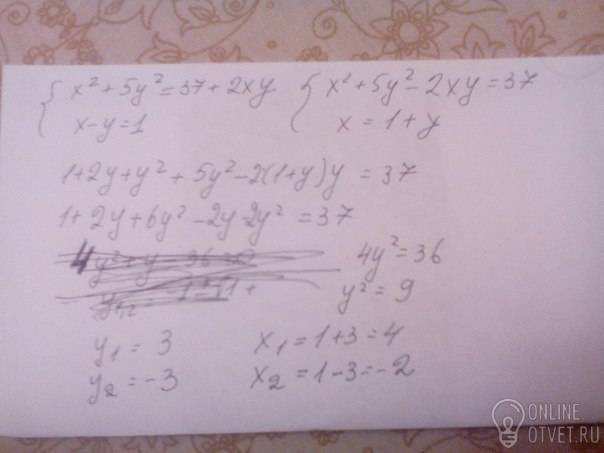 { x² + 5y² = 37 + 2xy { x² + 5y² - 2xy = 37
x - y = 1 x = 1 + y
1 + 2y + y² + 5y² - 2(1+y)y = 37
1 + 2y + 6y² - 2y - 2y² = 37
4y² = 36
y² = 9
y₁ = 3 x₁ = 1 + 3 = 4
y₂ = -3 x₂ = 1 - 3 = -2
ONLINE
OTVET.RU